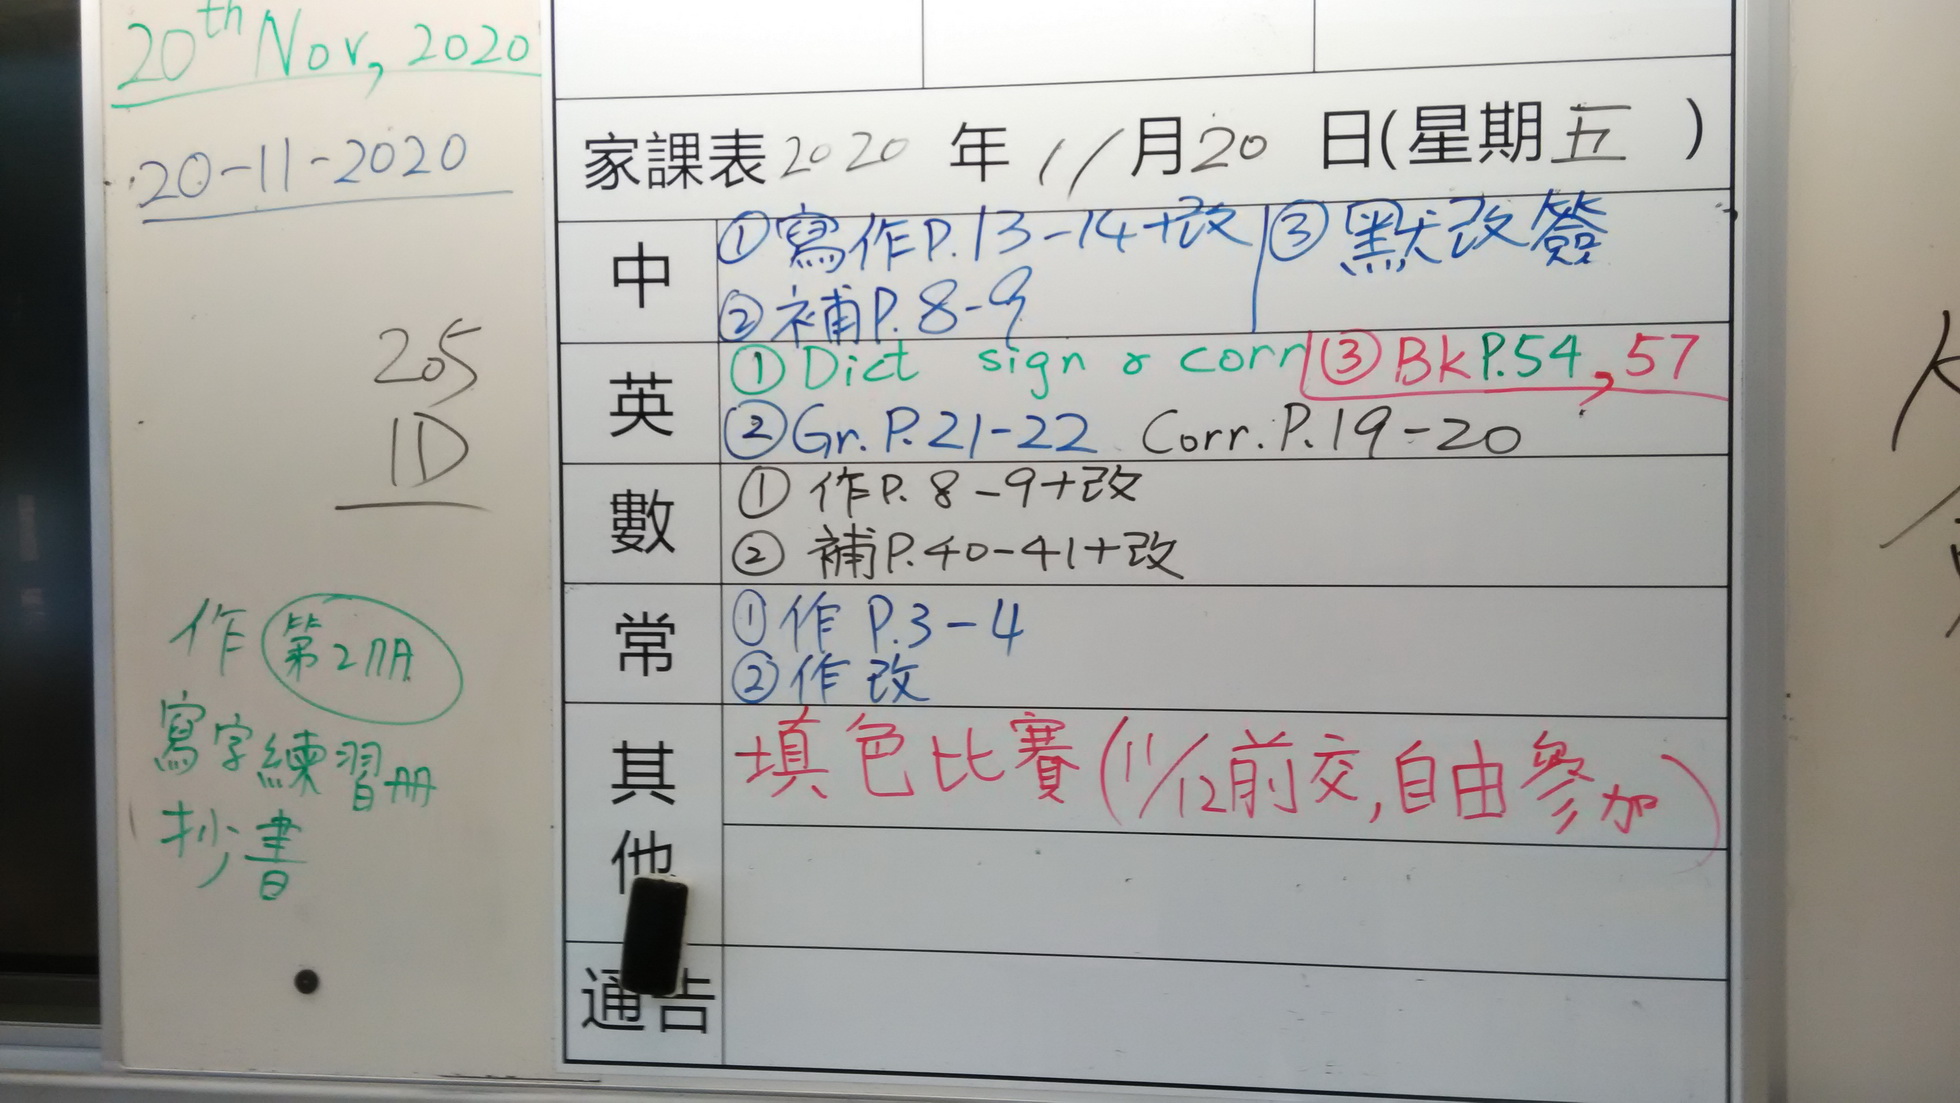 20th Nov, 2020
20-11-2020
205
1D
作 第2冊
寫字練習冊
抄書
家課表 2020 年 11 月 20 日(星期 五 )
中
①寫作P.13-14+改
②補P.8-9
③默改簽
英
①Dict sign & corr
③BkP.54,57
②Gr.P.21-22 Corr.P.19-20
數
①作P.8-9+改
②補P.40-41+改
常
①作P.3-4
②作改
其他
填色比賽(11/12前交,自由參加)
通告